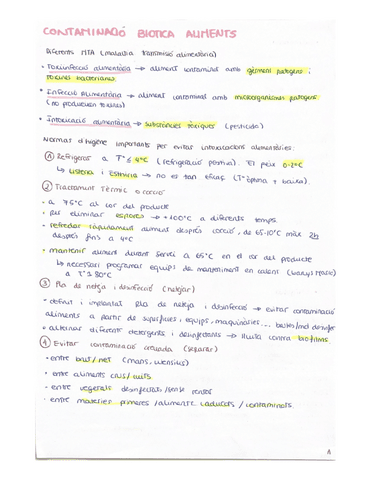 CONTAMINACIÓ BIÒTICA ALIMENTS
Diferents MTA (malaltia transmissió alimentària)
• Toxiinfecció alimentària → aliment contaminat amb gèrmens patògens i
toxines bacterianes.
• Infecció alimentària → aliment contaminat amb microorganismes patògens.
(no produeixen toxines)
• Intoxicació alimentària → substàncies tòxiques (pesticida)
Normes d'higiene importants per evitar intoxicacions alimentàries:
① Refrigeros a Tª ≤ 4ºC (refrigeració positiva). El peix 0-2ºC
↳ Listeria i no es tan eficaç (Tª òptima + baixa).
② Tractament tèrmic o cocció
• a 75ºC al cor del producte
• per eliminar espores → +100ºC a diferents temps.
• refredar ràpidament aliment després cocció, de 65-10ºC màx 2h
després fins a 4ºC
• mantenir aliment durant servei a 65ºC en el cor del producte
↳ necessari programar equips de manteniment en calent
a Tª ≥ 80ºC
③ Pla de neteja i desinfecció (netejar)
• definir i implantar Pla de neteja i desinfecció → evitar contaminació
aliments a partir de superfícies, equips, maquinàries...
• alternar diferents detergents i desinfectants → lluita contra biofilms.
④ Evitar contaminació creuada (separar)
• entre brut/net (mans, utensilis)
• entre aliments crus/cuits
• entre vegetals desinfectats/sense rentar
• entre matèries primeres/aliments caducats/contaminats.